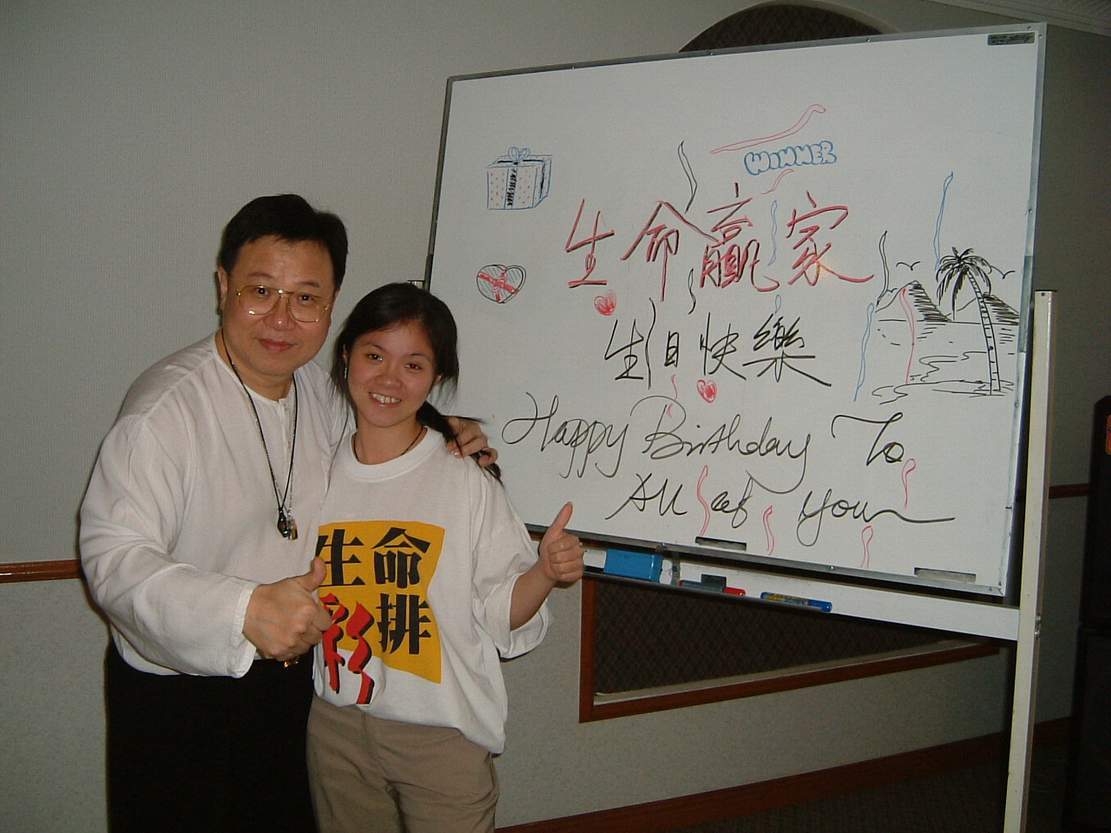 WINNER
生命贏家
生日快樂
Happy Birthday To
All of You
生命
彩排